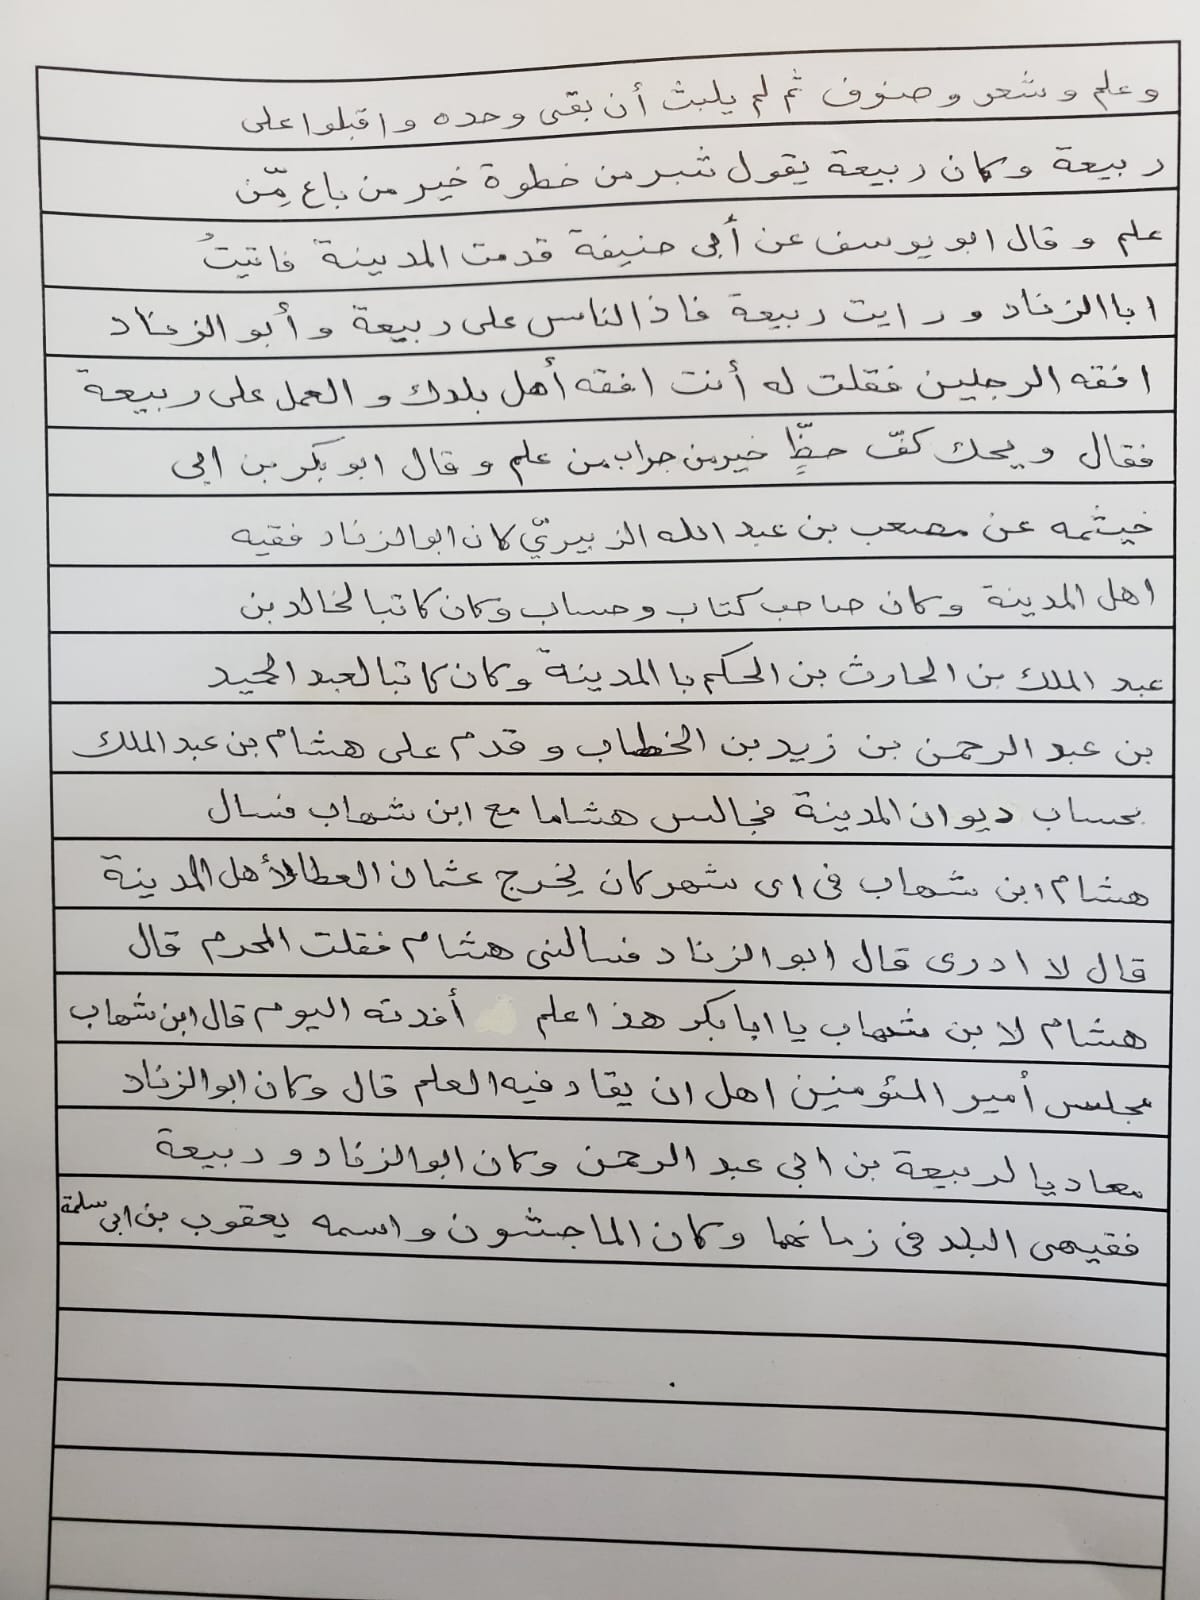 وعلم وشعر وصنوف ثم لم يلبث أن بقى وحده واقبلوا على
ربيعة وكان ربيعة يقول شبر من خطوة خير من باع مِّن
علم وقال ابو يوسف عن أبي حنيفة قدمت المدينة فاتيتُ
ابا الزناد ورايت ربيعة فاذ الناس على ربيعة وأبو الزناد
افقه الرجلين فقلت له أنت افقه أهل بلدك والعمل على ربيعة
فقال ويحك كفّ حظٍّ خير من جراب من علم وقال ابو بكر بن ابي
خيثمه عن مصعب بن عبد الله الزبيريّ كان ابو الزناد فقيه
اهل المدينة وكان صاحب كتاب وحساب وكان كاتبا لخالد بن
عبد الملك بن الحارث بن الحكم با المدينة وكان كاتبا لعبد الحميد
بن عبد الرحمن بن زيد بن الخطاب وقدم على هشام بن عبد الملك
بحساب ديوان المدينة فجالس هشاما مع ابن شهاب فسال
هشام ابن شهاب فى اى شهر كان يخرج عثمان العطا لأهل المدينة
قال لا ادرى قال ابو الزناد فسالنى هشام فقلت المحرم قال
هشام لا بن شهاب يا ابا بكر هذا علم أفدته اليوم قال ابن شهاب
مجلس أمير المئومنين اهل ان يقاد فيه العلم قال وكان ابو الزناد
معاديا لربيعة بن ابي عبد الرحمن وكان ابو الزناد وربيعة
فقيهى البلد فى زمانهما وكان الماجشون واسمه يعقوب بن ابى سلمة